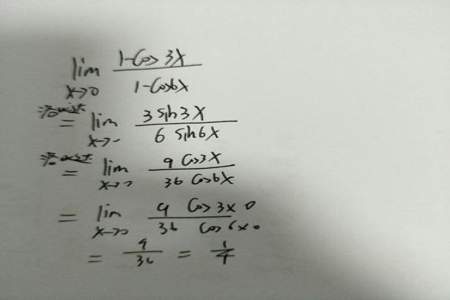 lim x→0 (1-cos 3x)/(1-cos6x)
洛必达 = lim x→0 (3 sin3x)/(6 sin6x)
洛必达 = lim x→0 (9 cos3x)/(36 cos6x)
= lim x→0 (9 cos 3×0)/(36 cos 6×0)
= 9/36 = 1/4